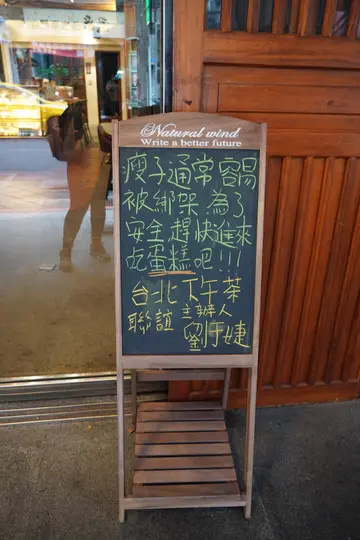 Natural wind
Write a better future
瘦子通常容易
被綁架.為了
安全.趕快進來
吃蛋糕吧!!!
台北下午茶
聯誼 主辦人
劉于婕